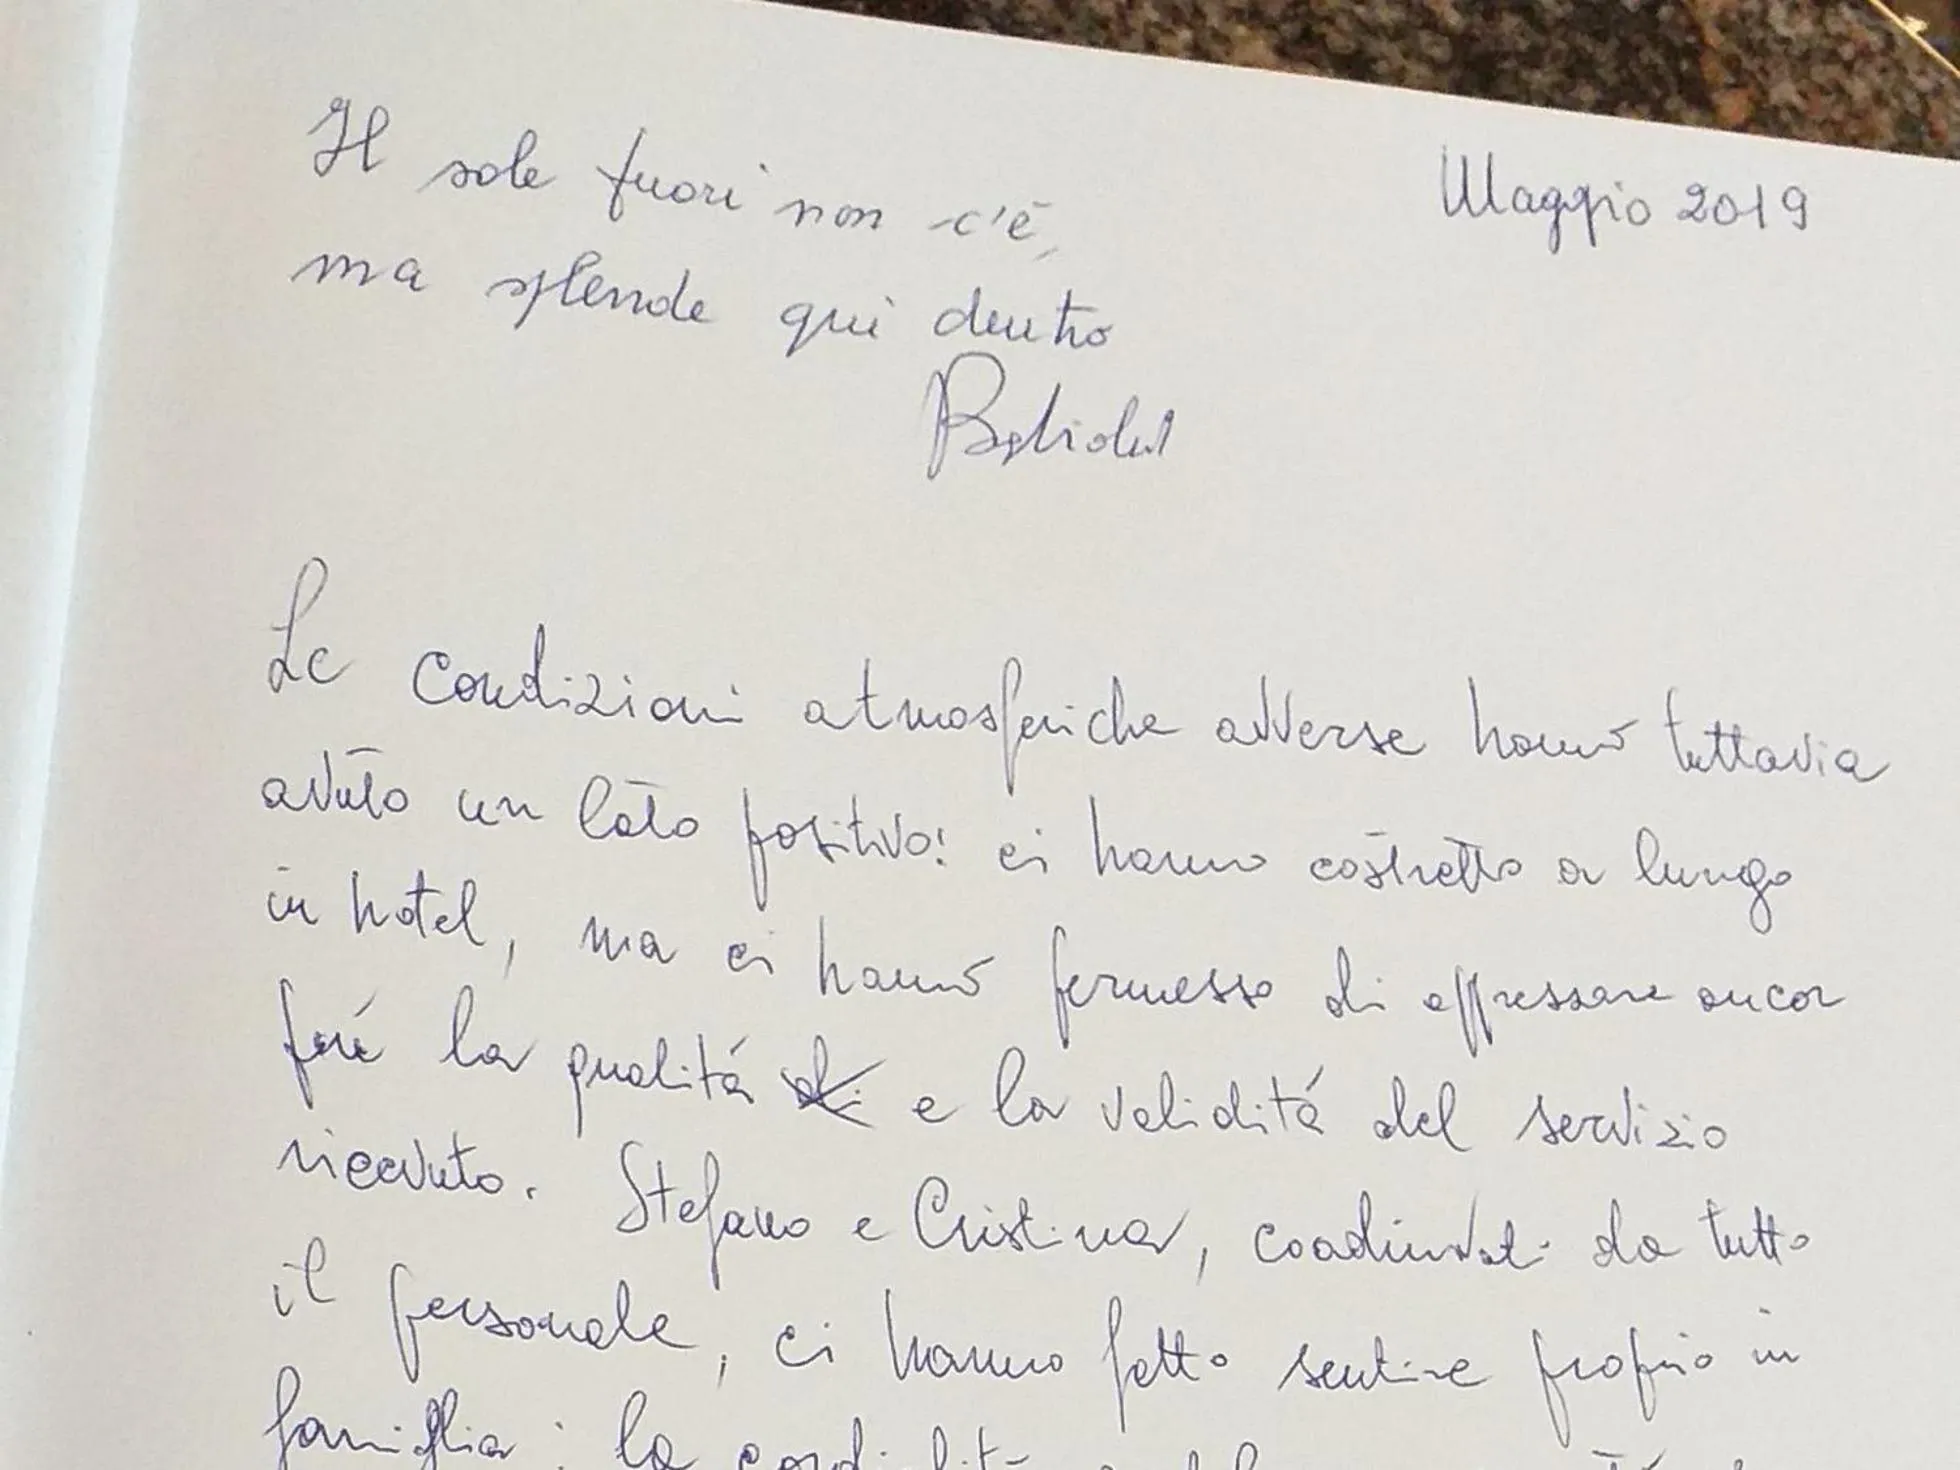 Il sole fuori non c'è,
Maggio 2019
ma splende qui dentro
Le condizioni atmosferiche avverse hanno tuttavia
avuto un lato positivo: ci hanno costretto a lungo
in hotel, ma ci hanno permesso di apprezzare ancor
più la qualità e la validità del servizio
ricevuto. Stefano e Cristina, coadiuvati da tutto
il personale, ci hanno fatto sentire proprio in
famiglia; la cordialità